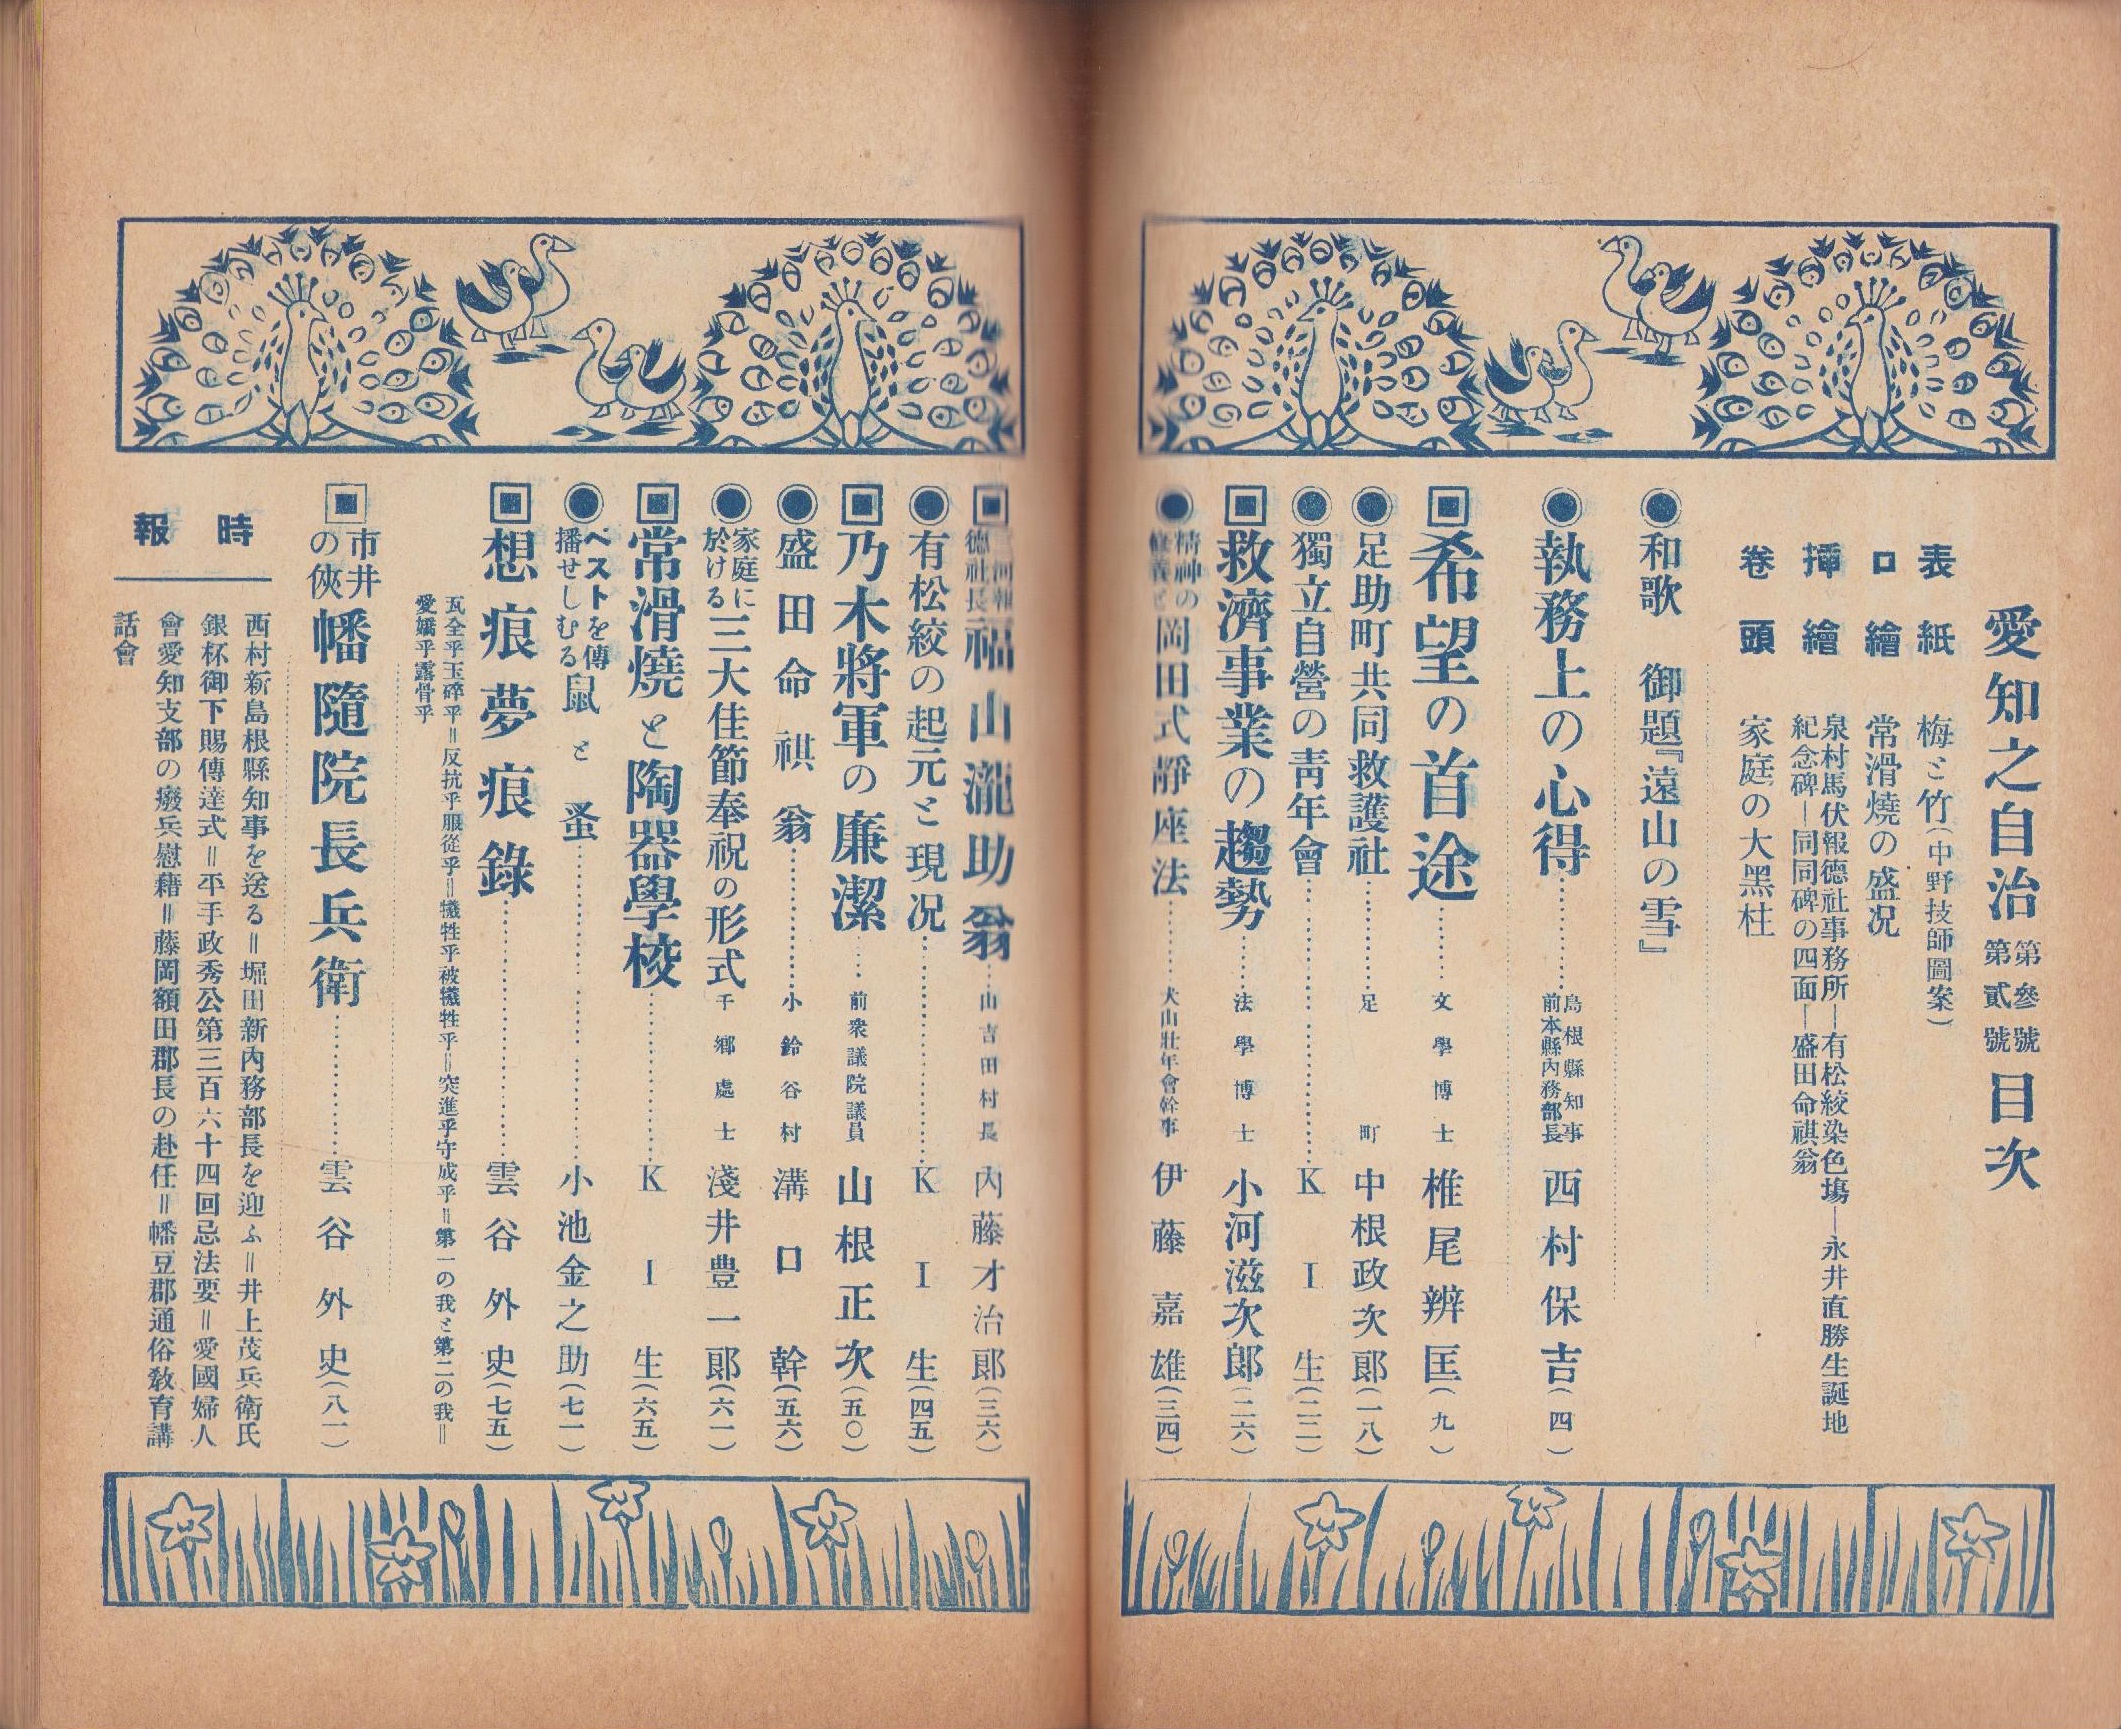 愛知之自治 第參號第貳號 目次
表紙 梅と竹(中野技師圖案)
口繪 常滑燒の盛况
挿繪 泉村馬伏報德社事務所―有松絞染色塲―永井直勝生誕地
紀念碑―同同碑の四面―盛田命祺翁
卷頭 家庭の大黑柱
和歌 御題『遠山の雪』
執務上の心得 島根縣知事前本縣內務部長 西村保吉(四)
希望の首途 文學博士 椎尾辨匡(九)
足助町共同救護社 足町 中根政次郞(一八)
獨立自營の靑年會 K I 生(二二)
救濟事業の趨勢 法學博士 小河滋次郎(二六)
精神の修養と岡田式靜座法 犬山壯年會幹事 伊藤嘉雄(三四)
三河報德社長福山瀧助翁 山吉田村長 內藤才治郞(三六)
有松絞の起元と現况 K I 生(四五)
乃木將軍の廉潔 前衆議院議員 山根正次(五〇)
盛田命祺翁 小鈴谷村 溝口幹(五六)
家庭に於ける三大佳節奉祝の形式 千鄕處士 淺井豊一郞(六一)
常滑燒と陶器學校 K I 生(六五)
ペストを傳播せしむる鼠と蚤 小池金之助(七一)
想痕夢痕錄 雲谷外史(七五)
瓦全乎玉碎乎＝反抗乎服從乎＝犧牲乎被犧牲乎＝突進乎守成乎＝第一の我と第二の我＝
愛嬌乎露骨乎
市井の俠 幡隨院長兵衛 雲谷外史(八一)
時報
西村新島根縣知事を送る＝堀田新內務部長を迎ふ＝井上茂兵衛氏
銀杯御下賜傳達式＝平手政秀公第三百六十四回忌法要＝愛國婦人
會愛知支部の癈兵慰藉＝藤岡額田郡長の赴任＝幡豆郡通俗敎育講
話會